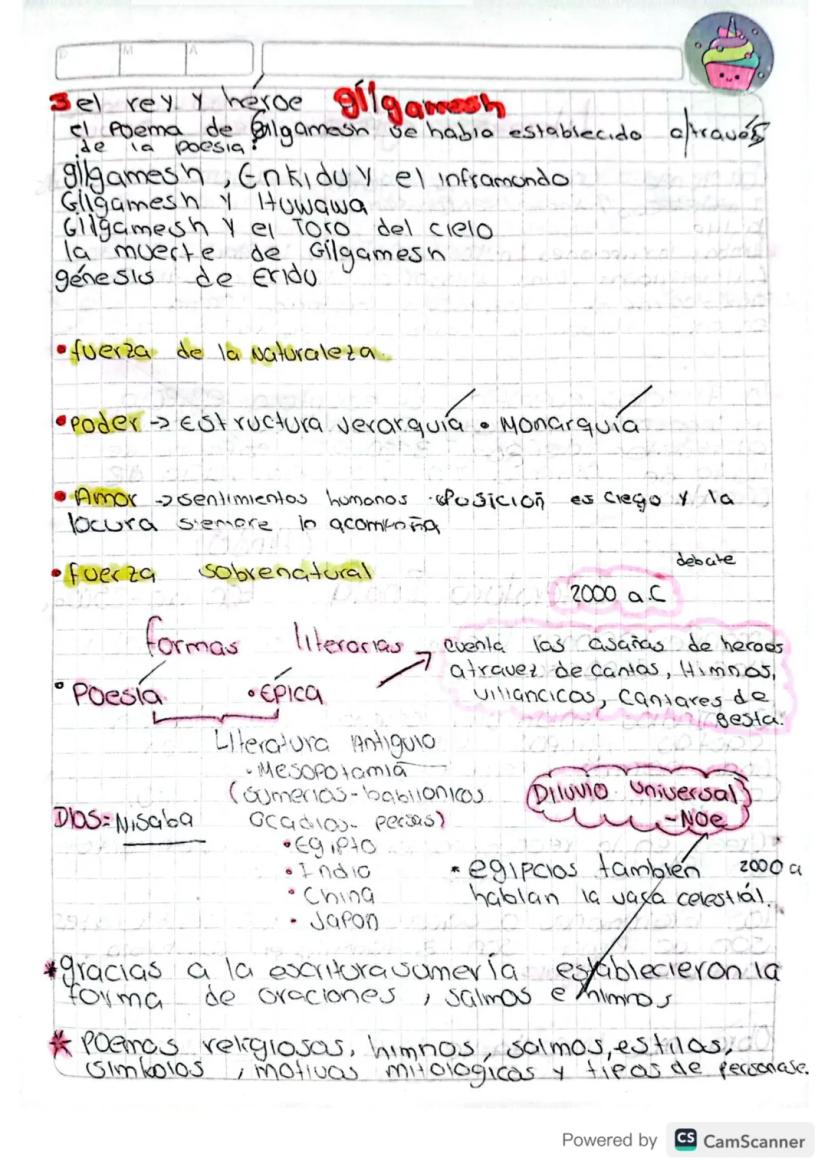 D M A
3 el rey y héroe gilgamesh
el poema de Gilgamesh se había establecido a/través
de la poesía:
gilgamesh, Enkidu y el inframundo
Gilgamesh y Huwawa
Gilgamesh y el Toro del cielo
la muerte de Gilgamesh
génesis de Eridu
• fuerza de la Naturaleza
• poder -> Estructura Jerarquía • Monarquía
• Amor -> sentimientos humanos oposición es ciego y la
locura siempre lo acompaña
• fuerza sobrenatural
debate
2000 a.C
formas literarias
cuenta las asañas de heroes
atravez de cantos, Himnos,
villancicos, Cantares de
gesta.
• Poesía • EPICA
Literatura Antigua
- Mesopotamia
(sumerios - babilonicos
acadios - persas)
Dios = Nisaba
• Egipto
• India
• China
• Japon
Diluvio Universal
- Noe
* egipcios también 2000 a
hablan la vaca celestial.
* gracias a la escritura sumería establecieron la
forma de oraciones, salmos e himnos
* Poemas religiosos, himnos, salmos, estilos,
símbolos, motivos mitologicos y tipos de personaje.
Powered by CS CamScanner